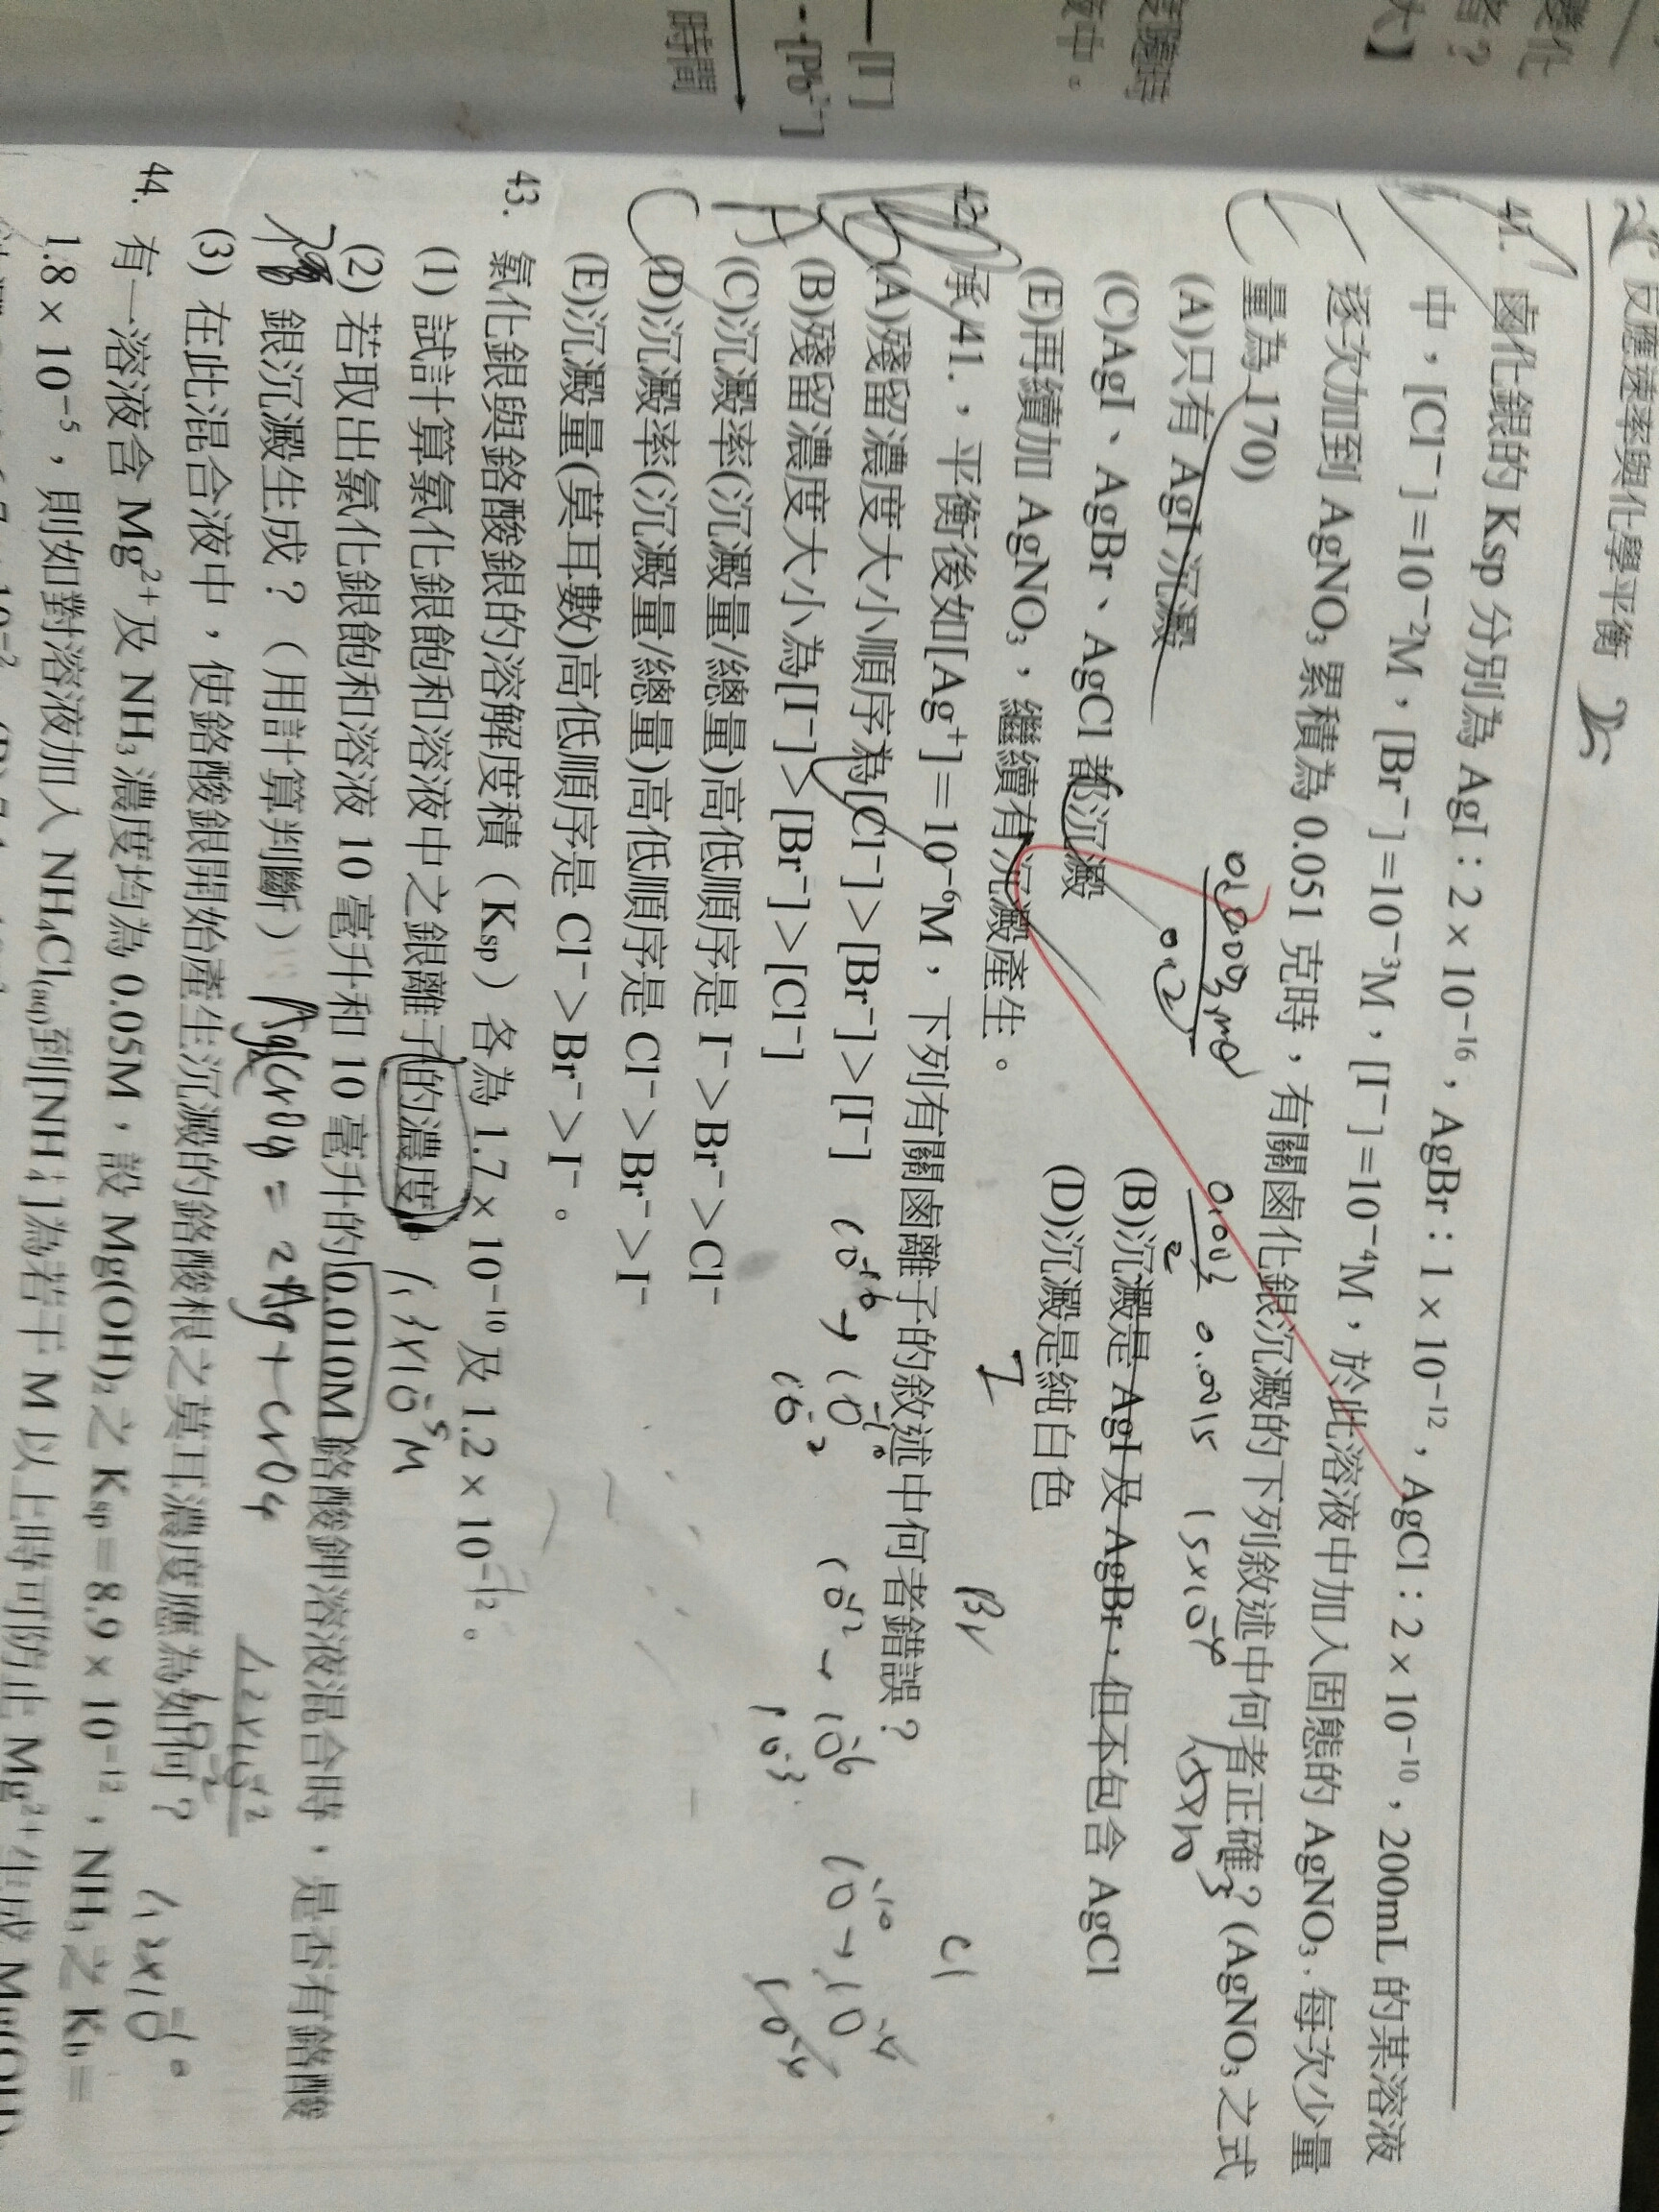 變化
者？
大】
更隨時
散中。
[I⁻]
[Pb²⁺]
時間
反應速率與化學平衡
41. 鹵化銀的 Ksp 分別為 AgI：2 × 10⁻¹⁶，AgBr：1 × 10⁻¹²，AgCl：2 × 10⁻¹⁰，200mL 的某溶液
中，[Cl⁻]=10⁻²M，[Br⁻]=10⁻³M，[I⁻]=10⁻⁴M，於此溶液中加入固態的 AgNO₃，每次少量
逐次加到 AgNO₃ 累積為 0.051 克時，有關鹵化銀沉澱的下列敘述中何者正確？(AgNO₃ 之式
量為 170)
(A)只有 AgI 沉澱 (B)沉澱是 AgI 及 AgBr，但不包含 AgCl
(C)AgI、AgBr、AgCl 都沉澱 (D)沉澱是純白色
(E)再續加 AgNO₃，繼續有沉澱產生。
0.0015 15×10⁻⁴ 1.5×10⁻³
I Br Cl
42. 承 41.，平衡後如[Ag⁺]＝10⁻⁶M，下列有關鹵離子的敘述中何者錯誤？
(A)殘留濃度大小順序為[Cl⁻]＞[Br⁻]＞[I⁻]
(B)殘留濃度大小為[I⁻]＞[Br⁻]＞[Cl⁻]
(C)沉澱率(沉澱量/總量)高低順序是 I⁻＞Br⁻＞Cl⁻
(D)沉澱率(沉澱量/總量)高低順序是 Cl⁻＞Br⁻＞I⁻
(E)沉澱量(莫耳數)高低順序是 Cl⁻＞Br⁻＞I⁻。
43. 氯化銀與鉻酸銀的溶解度積（Ksp）各為 1.7 × 10⁻¹⁰ 及 1.2 × 10⁻¹²。
(1) 試計算氯化銀飽和溶液中之銀離子的濃度 1.3×10⁻⁵M
(2) 若取出氯化銀飽和溶液 10 毫升和 10 毫升的 0.010M 鉻酸鉀溶液混合時，是否有鉻酸
銀沉澱生成？（用計算判斷） Ag₂CrO₄ = 2Ag + CrO₄
(3) 在此混合液中，使鉻酸銀開始產生沉澱的鉻酸根之莫耳濃度應為如何？
44. 有一溶液含 Mg²⁺ 及 NH₃ 濃度均為 0.05M，設 Mg(OH)₂ 之 Ksp＝8.9 × 10⁻¹²，NH₃ 之 Kb＝
1.8 × 10⁻⁵，則如對溶液加入 NH₄Cl(aq)到[NH₄⁺]為若干 M 以上時可防止 Mg²⁺ 生成 Mg(OH)₂